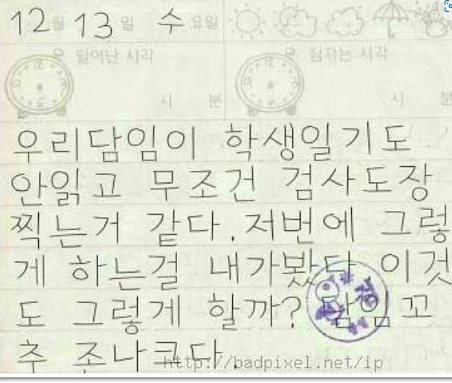 12월 13일 수요일
일어난 시각 잠자는 시각
시 분 시 분
우리담임이 학생일기도
안읽고 무조건 검사도장
찍는거 같다. 저번에 그렇
게 하는걸 내가봤다 이것
도 그렇게 할까? 담임꼬
추 존나코다.
http://badpixel.net/ip